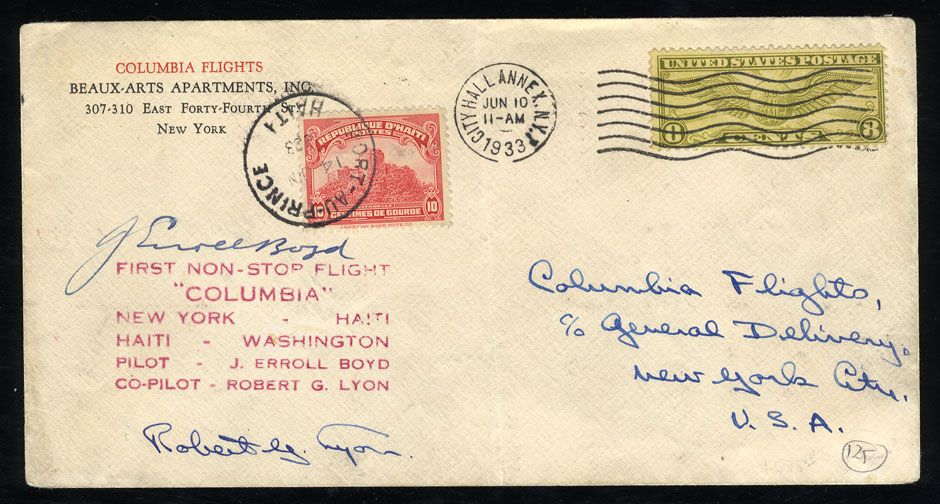 COLUMBIA FLIGHTS
BEAUX-ARTS APARTMENTS, INC.
307-310 EAST FORTY-FOURTH ST.
NEW YORK
PORT-AU-PRINCE
HAITI
14
REPUBLIQUE D'HAITI
POSTES
10
CENTIMES DE GOURDE
AMERICAN BANK NOTE CO
CITY HALL ANNEX, N.Y.
JUN 10
11-AM
1933
UNITED STATES POSTAGE
8 CENTS 8
J Erroll Boyd
FIRST NON-STOP FLIGHT
"COLUMBIA"
NEW YORK - HAITI
HAITI - WASHINGTON
PILOT - J. ERROLL BOYD
CO-PILOT - ROBERT G. LYON
Robert G. Lyon.
Columbia Flights,
c/o General Delivery,
New York City.
U. S. A.
125